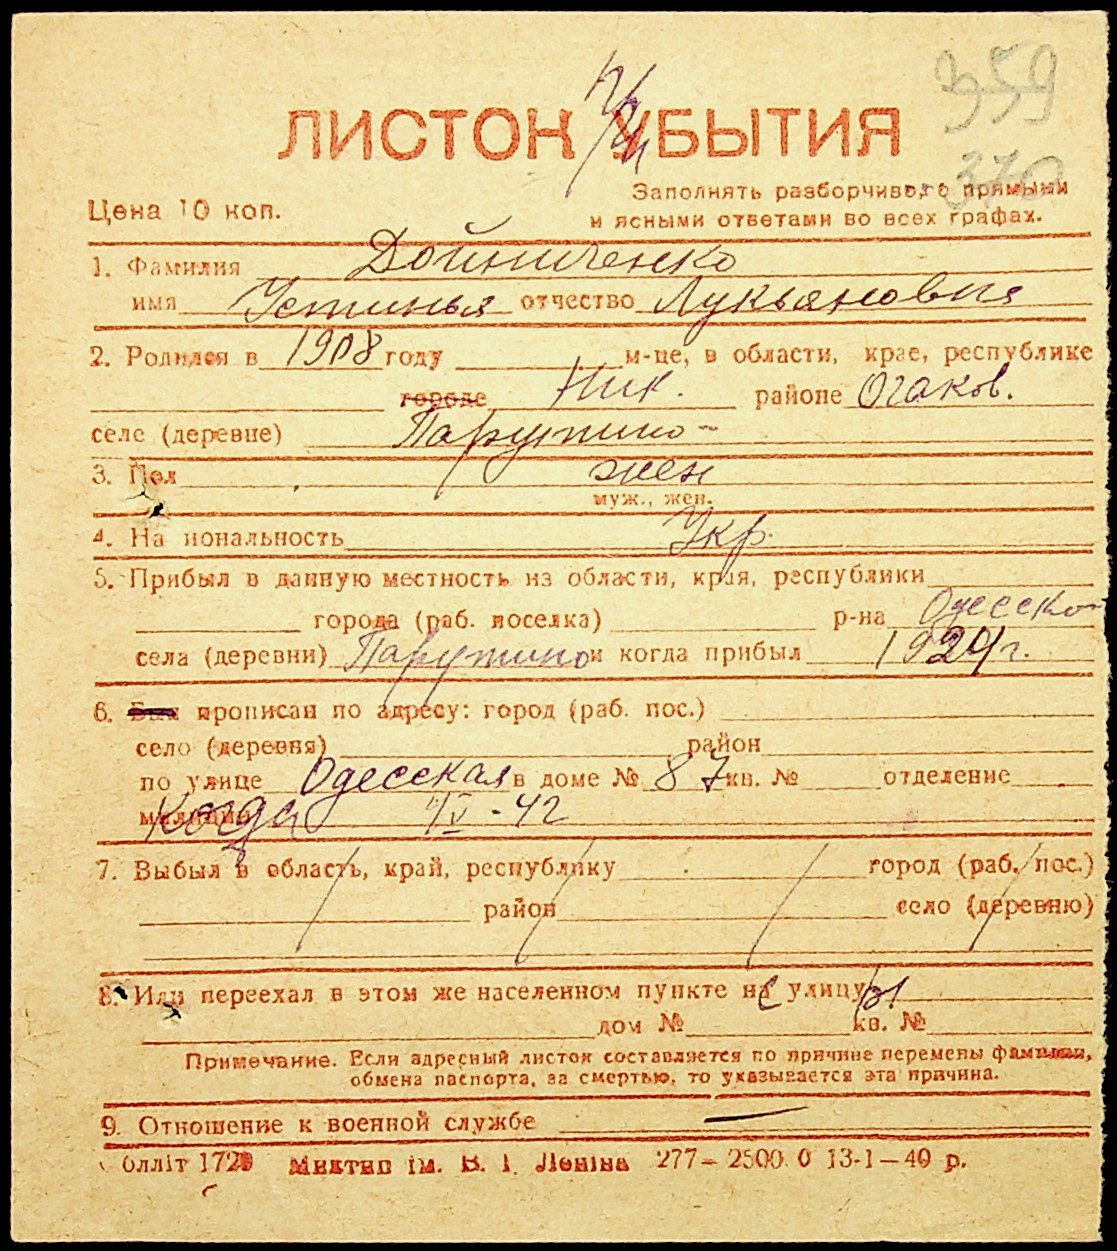 359
ЛИСТОК УБЫТИЯ
370
Цена 10 коп.
Заполнять разборчиво, с прямыми
и ясными ответами во всех графах.
1. Фамилия Дойниченко
имя Устинья отчество Лукьяновна
2. Родился в 1908 году м-це, в области, крае, республике
городе Ник. районе Очаков.
селе (деревне) Парутино
3. Пол жен
муж., жен.
4. Национальность Укр.
5. Прибыл в данную местность из области, края, республики
города (раб. поселка) р-на Одесско
села (деревни) Парутино и когда прибыл 1924 г.
6. Был прописан по адресу: город (раб. пос.)
село (деревня) район
по улице Одесская в доме № 87 кв. № отделение
милиции Когда V - 42
7. Выбыл в область, край, республику город (раб. пос.)
район село (деревню)
8. Или переехал в этом же населенном пункте на улицу
дом № кв. №
Примечание. Если адресный листок составляется по причине перемены фамилии,
обмена паспорта, за смертью, то указывается эта причина.
9. Отношение к военной службе —
облліт 172 Миктип ім. В. І. Леніна 277–2500.0 13-1–40 р.